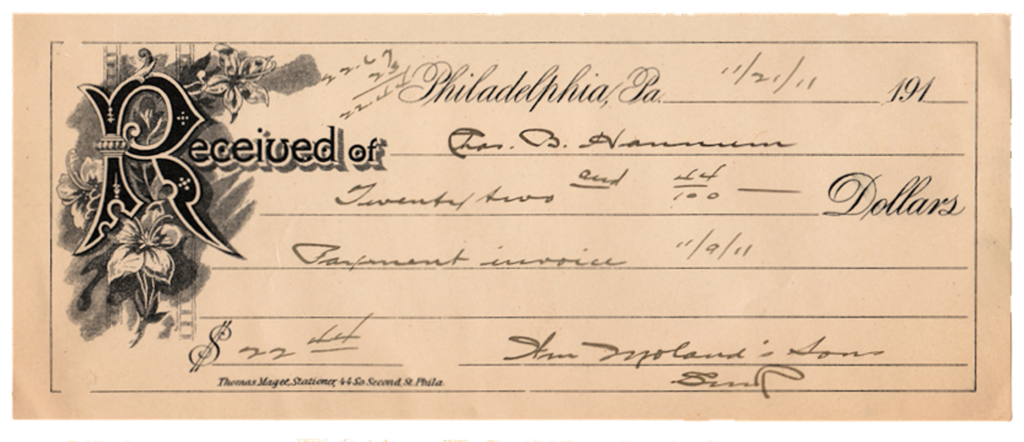 22.67
23
22.44
Philadelphia, Pa. 11/21/11 191
Received of Chas. B. Hannum
Twenty two and 44/100 — Dollars
Payment invoice 11/9/11
$ 22 44 Wm Moland's Sons
Thomas Magee, Stationer, 44 So. Second. St. Phila.